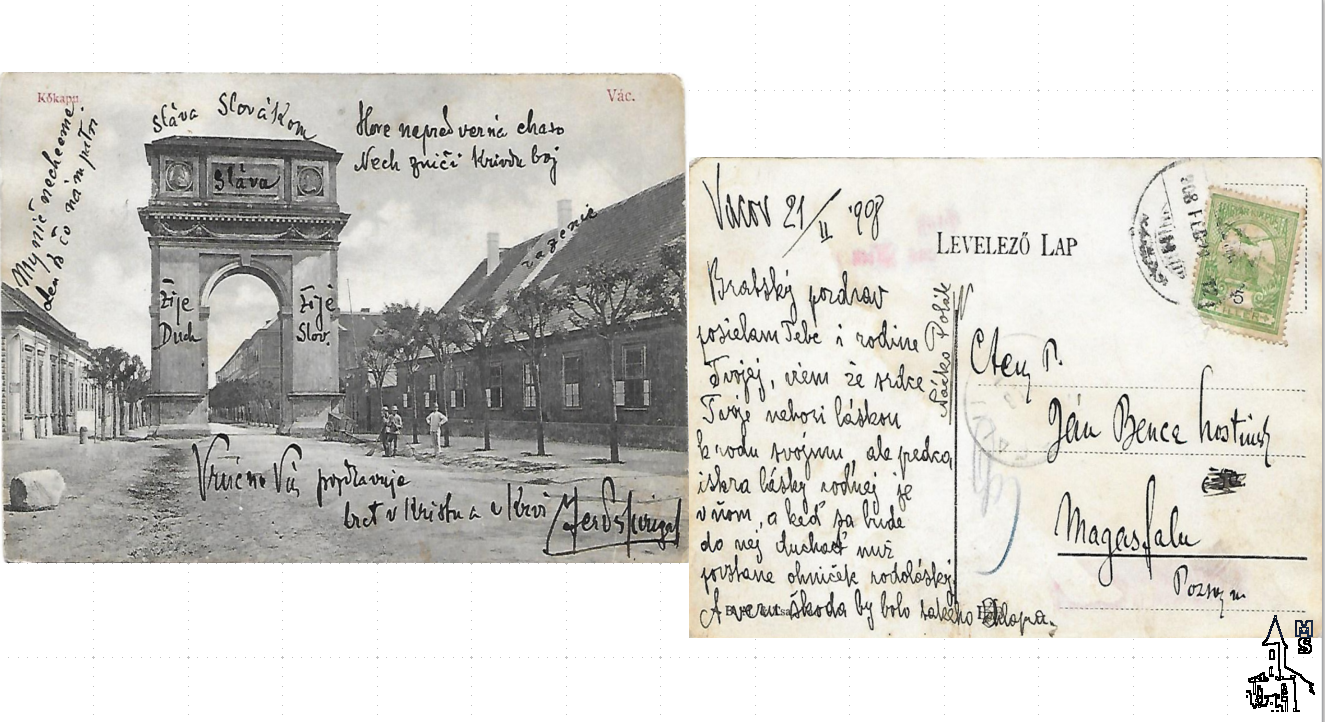 Kőkapu.
Vác.
Sláva Slovákom
Hore napred verná chaso
Nech zničí Krivdu boj
My nič nechceme
len to čo nám patrí
Sláva
Žije
Duch
Žije
Slov.
väzenie
Vrúcne Vás pozdravuje
brat v Kristu a v Krvi
Vacov 21/II 1908
LEVELEZŐ LAP
Bratský pozdrav
posielam Tebe i rodine
Tvojej, viem že srdce
Tvoje nehorí láskou
k rodu svojmu ale predca
iskra lásky rodnej je
v ňom, a keď sa bude
do nej duchať muž
povstane ohníček rodolásky
A veru škoda by bolo takého chlapa.
Náčko Polák
908 FEB
MAGYAR KIR. POSTA
5
Cten P.
Ján Benca hostinsk
Magasfalu
Pozsny m
MS